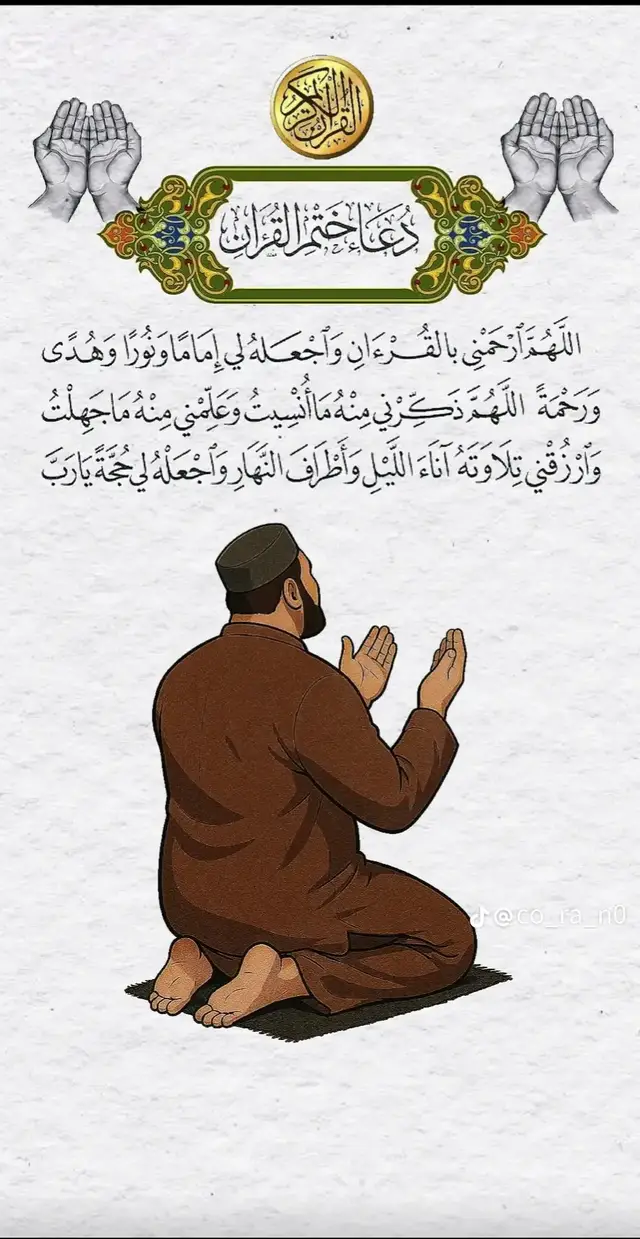 القرآن الكريم
دُعَاءُ خَتْمِ الْقُرْآنِ
اللَّهُمَّ ٱرْحَمْنِي بِالْقُرْءَانِ وَٱجْعَلْهُ لِي إِمَامًا وَنُورًا وَهُدًى
وَرَحْمَةً اللَّهُمَّ ذَكِّرْنِي مِنْهُ مَا أُنْسِيتُ وَعَلِّمْنِي مِنْهُ مَا جَهِلْتُ
وَٱرْزُقْنِي تِلَاوَتَهُ آنَاءَ اللَّيْلِ وَأَطْرَافَ النَّهَارِ وَٱجْعَلْهُ لِي حُجَّةً يَا رَبَّ
@co_ra_n0